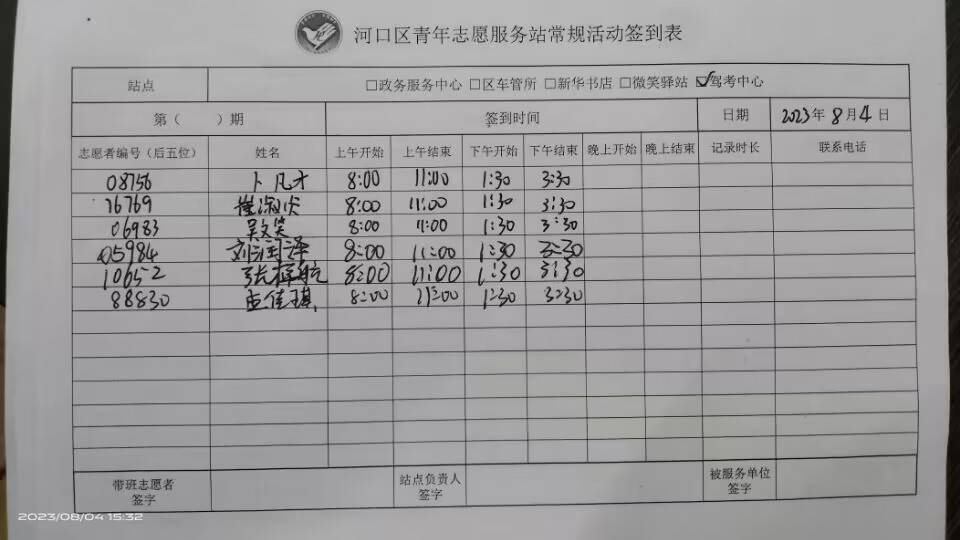 河口区青年志愿服务站常规活动签到表
站点 □政务服务中心 □区车管所 □新华书店 □微笑驿站 ☑驾考中心
第（ ）期 签到时间 日期 2023年8月4日
志愿者编号（后五位） 姓名 上午开始 上午结束 下午开始 下午结束 晚上开始 晚上结束 记录时长 联系电话
08756 卜凡才 8:00 11:00 1:30 3:30
16769 崔淑 8:00 11:00 1:30 3:30
06983 吴文笑 8:00 11:00 1:30 3:30
05984 刘润泽 8:00 11:00 1:30 3:30
10652 张梓航 8:00 11:00 1:30 3:30
88830 孟佳琪 8:00 11:00 1:30 3:30
带班志愿者 站点负责人 被服务单位
签字 签字 签字
2023/08/04 15:32